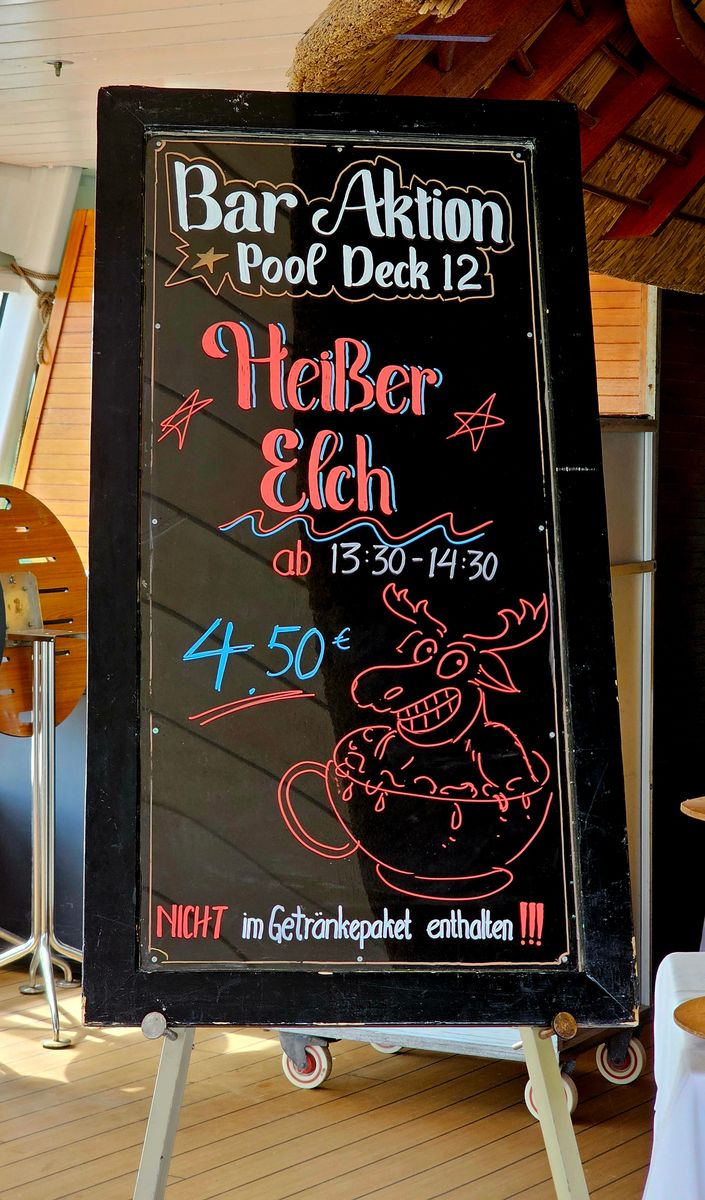 Bar Aktion
Pool Deck 12
Heißer
Elch
ab 13:30-14:30
4.50€
NICHT im Getränkepaket enthalten !!!